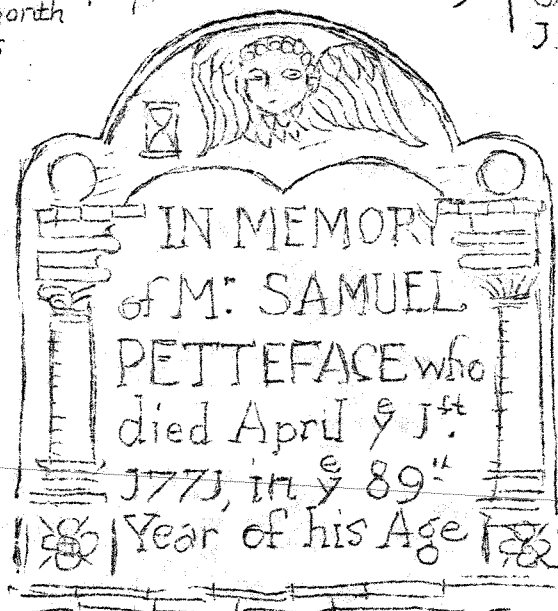 orth
J
IN MEMORY
of Mr: SAMUEL
PETTEFACE who
died April ye Jst.
J77J, in ye 89th
Year of his Age